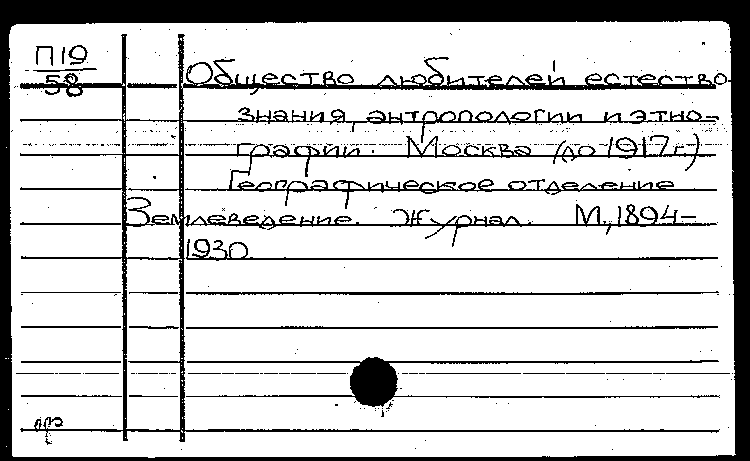 П19
58
Общество любителей естество-
знания, антропологии и этно-
графии. Москва (до 1917 г.)
Географическое отделение
Землеведение. Журнал. М., 1894-
1930.